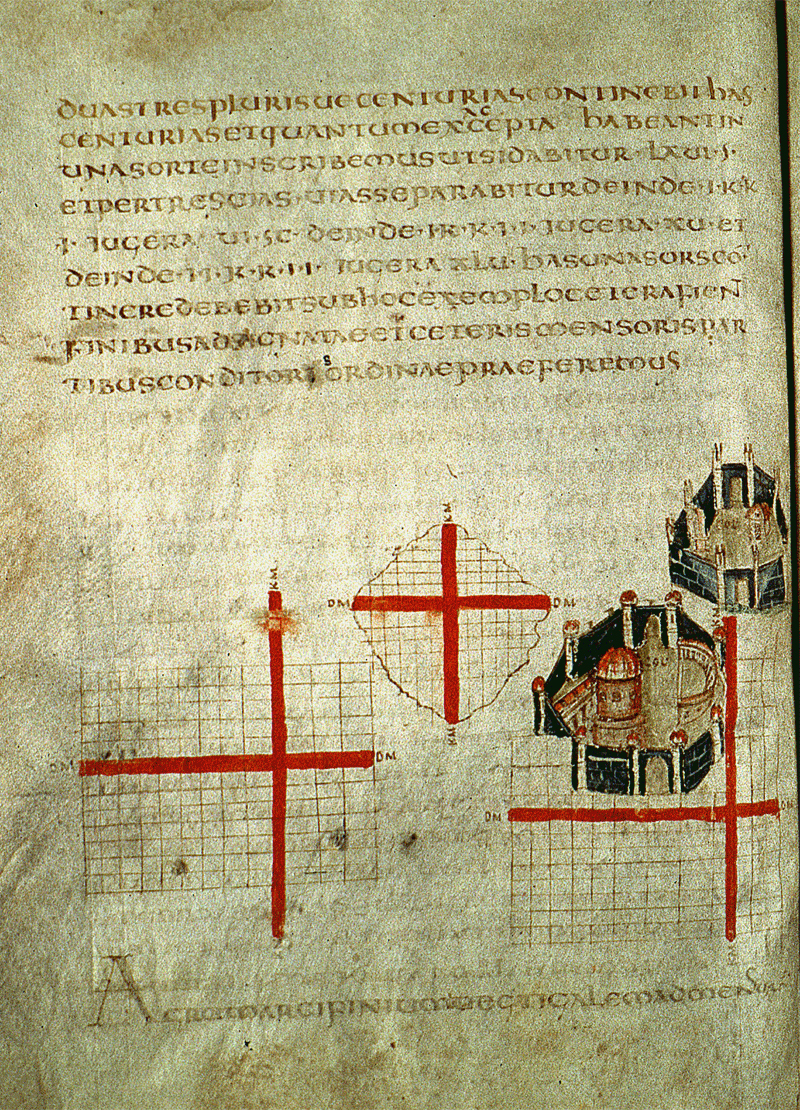 DUASTRESPLURISUECENTURIASCONTINEBIT HAS
CENTURIASETQUANTUMEXACCEPTA HABEANTIN
UNASORTEINSCRIBEMUSUTSIDABITUR
DEINDE·I·K·K
·I· IUGERA UI·SC· DEINDE·IK·K·I·I· IUGERA·XU·ET
DEINDE·I·I·K·K·I·I· IUGERA XLU·HASUNASORSCO
TINEREDEBEBITSUBHOCEXEMPLOCETERAFIEN
FINIBUSADSACNATAEETCETERISMENSORISPAR
TIBUSCONDITORIS ORDINAEPRAEFEREMUS
KM
DM
DM
KM
KM
DM
DM
COL
DM
DM
AGRUMARCIFINIUMUECTIGALEMADMENSU